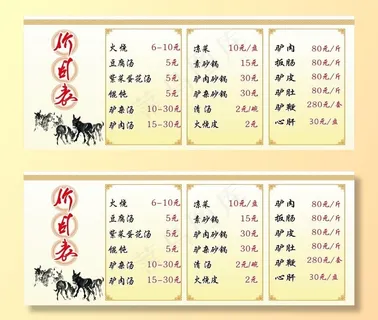 价目表
火烧 6-10元
豆腐汤 5元
紫菜蛋花汤 5元
馄饨 5元
驴杂汤 10-30元
驴肉汤 15-30元
凉菜 10元/盘
素砂锅 15元
驴肉砂锅 30元
驴杂砂锅 30元
清汤 2元/碗
火烧皮 2元
驴肉 80元/斤
板肠 80元/斤
驴皮 80元/斤
驴肚 80元/斤
驴鞭 280元/套
心肝 30元/盘
价目表
火烧 6-10元
豆腐汤 5元
紫菜蛋花汤 5元
馄饨 5元
驴杂汤 10-30元
驴肉汤 15-30元
凉菜 10元/盘
素砂锅 15元
驴肉砂锅 30元
驴杂砂锅 30元
清汤 2元/碗
火烧皮 2元
驴肉 80元/斤
板肠 80元/斤
驴皮 80元/斤
驴肚 80元/斤
驴鞭 280元/套
心肝 30元/盘